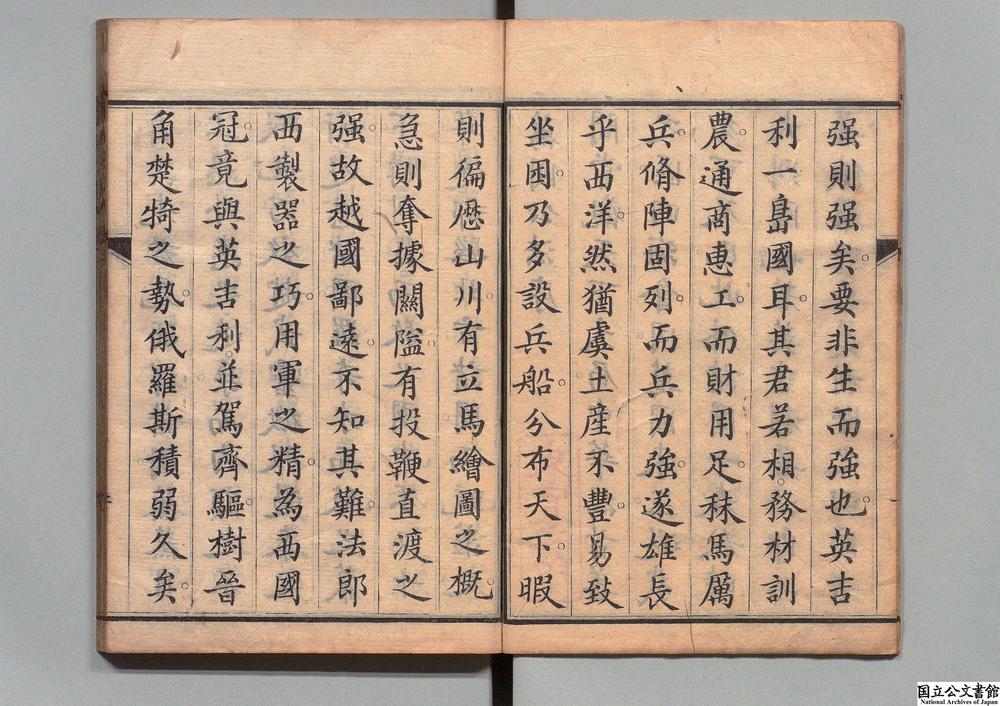 强則强矣。要非生而强也。英吉
利一島國耳。其君若相。務材訓
農。通商惠工。而財用足。秣馬厲
兵。脩陣固列。而兵力强。遂雄長
乎西洋。然猶虞土産不豐。易致
坐困。乃多設兵船。分布天下。暇
則徧歴山川。有立馬繪圖之概。
急則奪據關隘。有投鞭直渡之
强。故越國鄙遠。不知其難。法郎
西製器之巧。用軍之精。為西國
冠。竟與英吉利。並駕齊驅。樹晉
角楚犄之勢。俄羅斯積弱久矣。
国立公文書館
National Archives of Japan